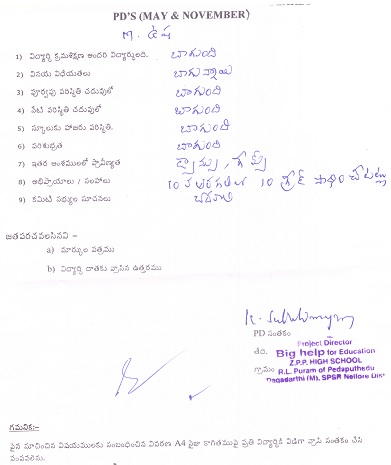 PD'S (MAY & NOVEMBER)
M. ఉష
1) విద్యార్థి క్రమశిక్షణ ఇందరి విద్యార్థులది. బాగుంది
2) వినయ విధేయతలు బాగున్నాయి
3) పూర్వపు పరిస్థితి చదువులో బాగుంది
4) నేటి పరిస్థితి చదువులో బాగుంది
5) స్కూలుకు హాజరు పరిస్థితి. బాగుంది
6) పరిశుభ్రత బాగుంది
7) ఇతర అంశములలో ప్రావీణ్యత డ్యాన్సు, గేమ్స్
8) అభిప్రాయాలు / సలహాలు 10 వ తరగతిలో 10 గ్రేడ్ సాధించేటట్లు
9) కమిటి సభ్యుల సూచనలు చదవాలి
జతపరచవలసినవి -
a) మార్కుల పత్రము
b) విద్యార్థి దాతకు వ్రాసిన ఉత్తరము
PD సంతకం
Project Director
తేది. Big help for Education
Z.P.P. HIGH SCHOOL
గ్రామం R.L. Puram of Pedaputhedu
Dagadarthi (M), SPSR Nellore Dist
గమనిక:-
పైన సూచించిన విషయములకు సంబంధించిన వివరణ A4 సైజు కాగితముపై ప్రతి విద్యార్థికి విడిగా వ్రాసి సంతకం చేసి
పంపవలెను.